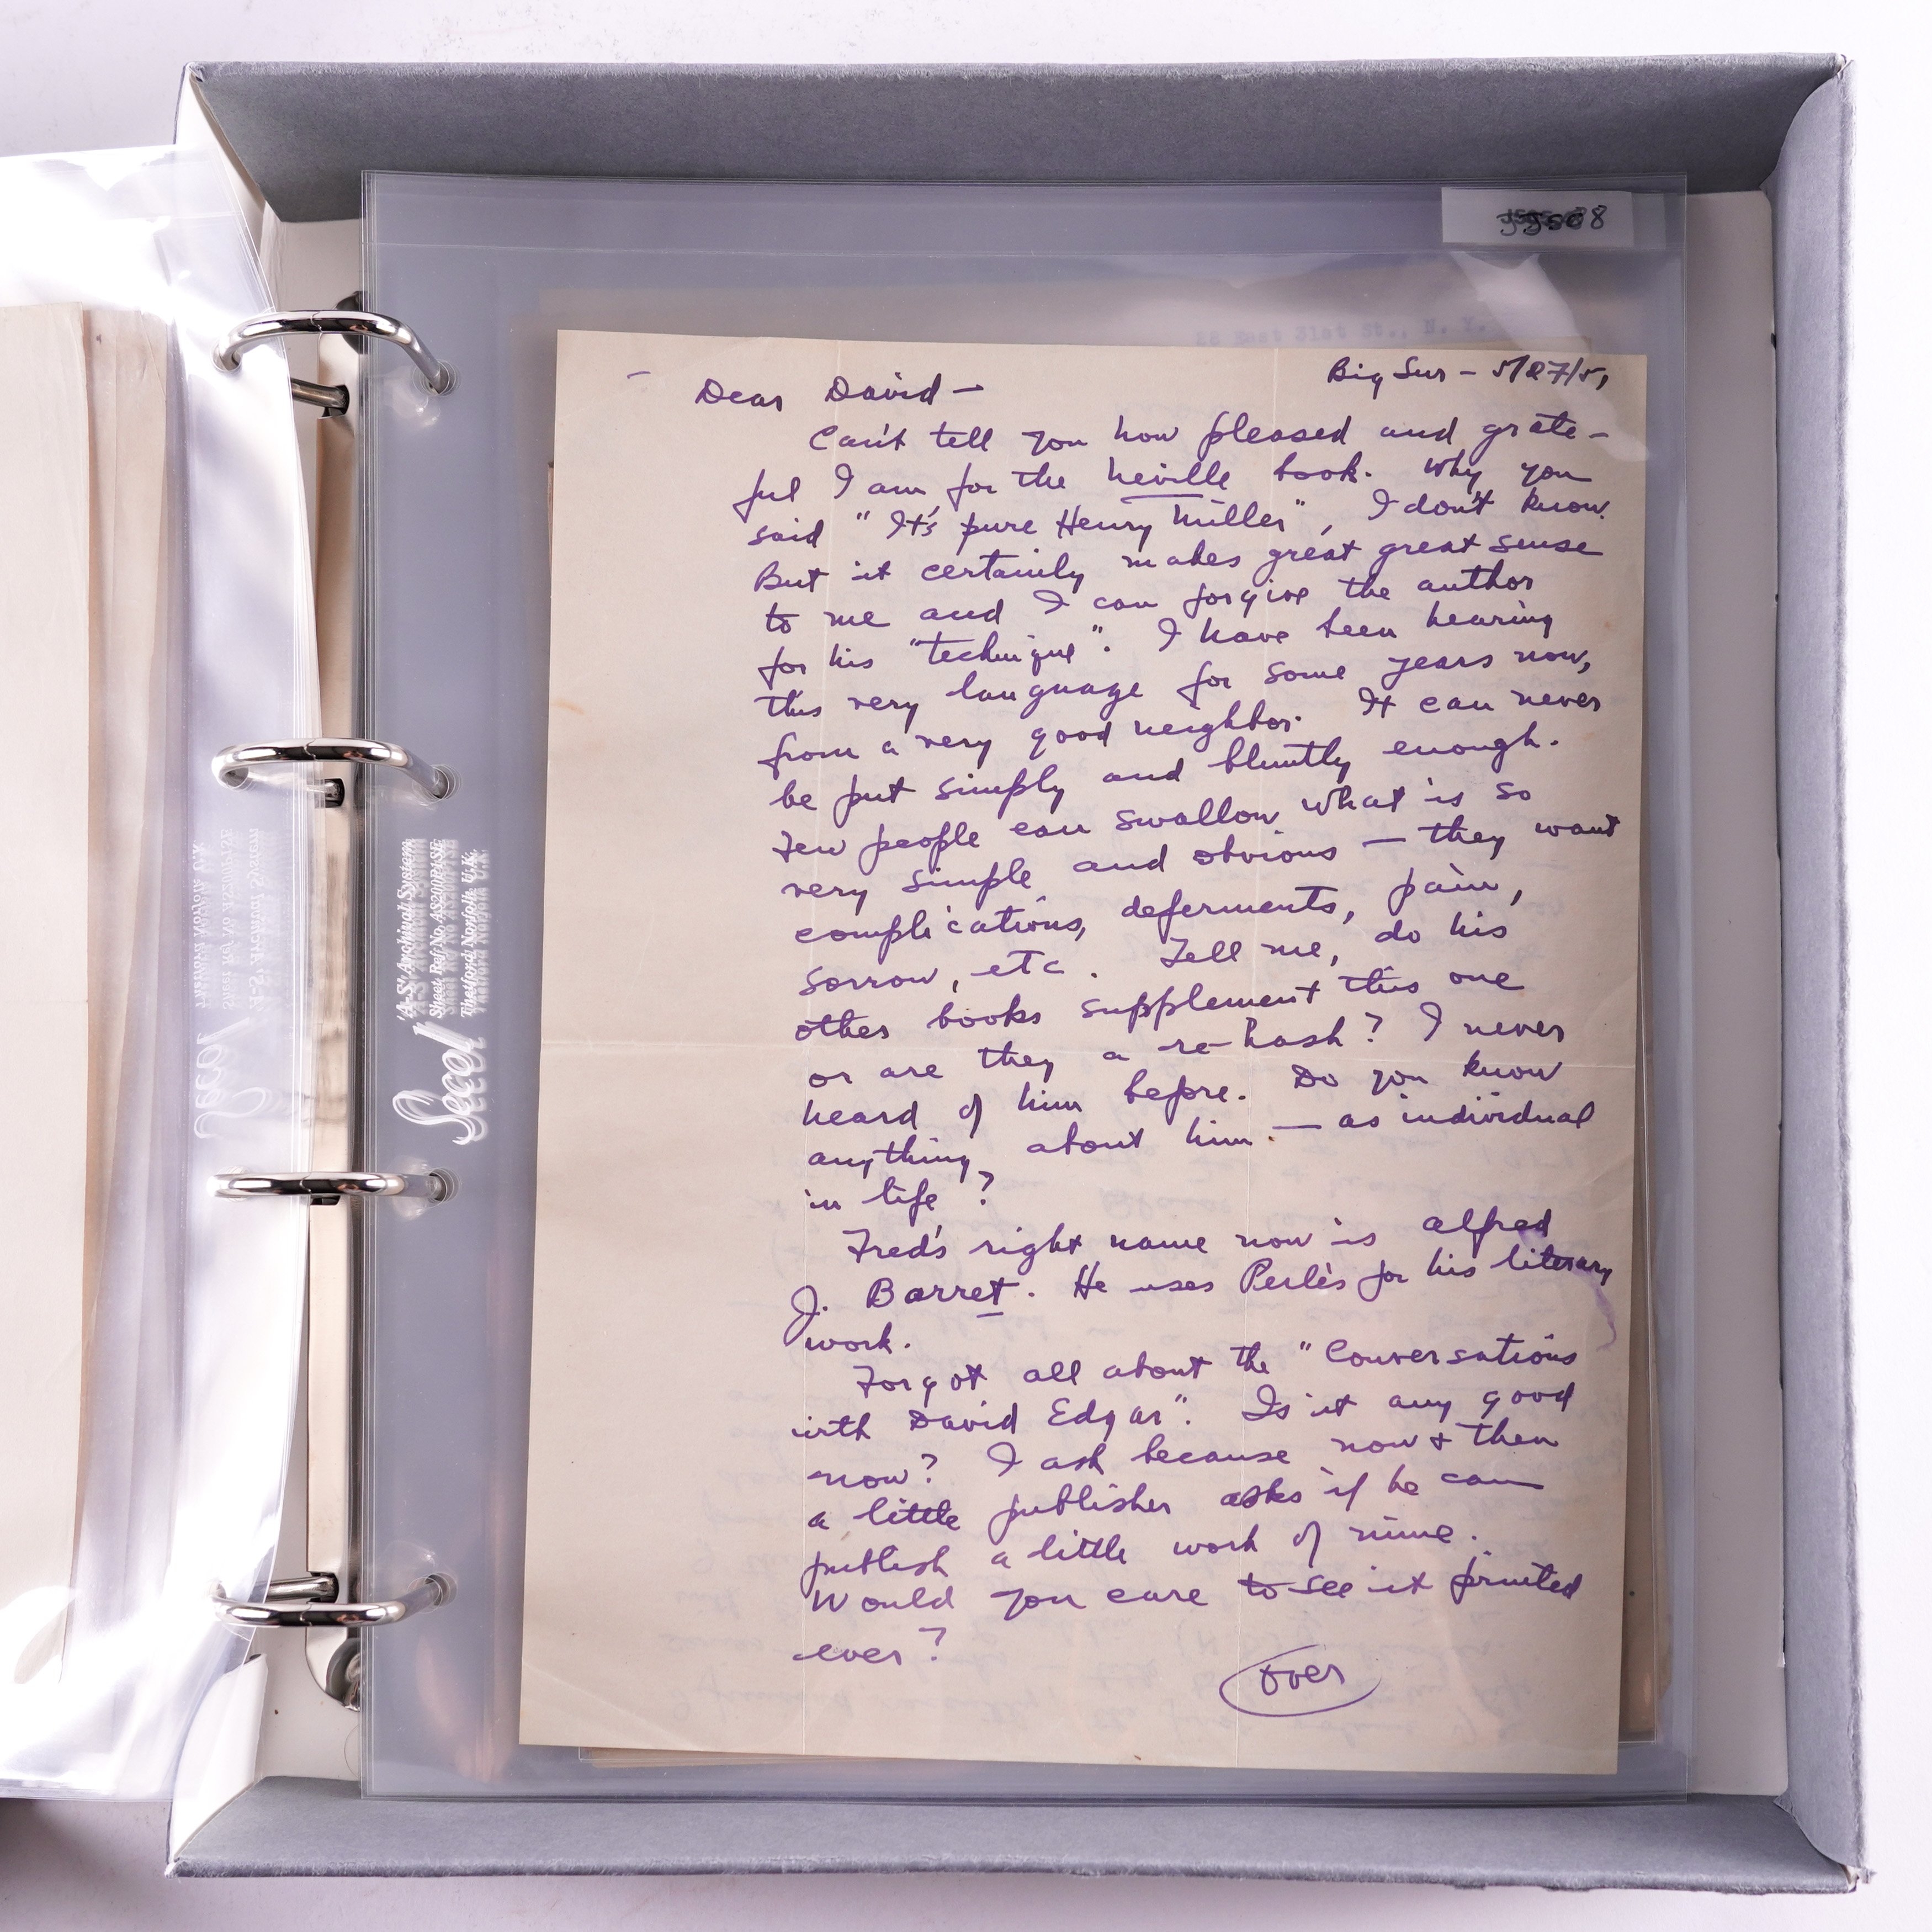 58 East 31st St., N. Y.
Big Sur - 5/27/51
Dear David -
Can't tell you how pleased and grate-
ful I am for the Neville book. Why you
said "It's pure Henry Miller", I don't know.
But it certainly makes great great sense
to me and I can forgive the author
for his "technique". I have been hearing
this very language for some years now,
from a very good neighbor. It can never
be put simply and bluntly enough.
Few people can swallow what is so
very simple and obvious — they want
complications, deferments, pain,
sorrow, etc. Tell me, do his
other books supplement this one
or are they a re-hash? I never
heard of him before. Do you know
anything about him — as individual
in life?
Fred's right name now is Alfred
J. Barret. He uses Perlès for his literary
work.
Forgot all about the "Conversations
with David Edgar". Is it any good
now? I ask because now + then
a little publisher asks if he can
publish a little work of mine.
Would you care to see it printed
ever?
over
Secol
'A-S' Archival System
Sheet Ref No. AS200P/ASE
Thetford Norfolk U.K.